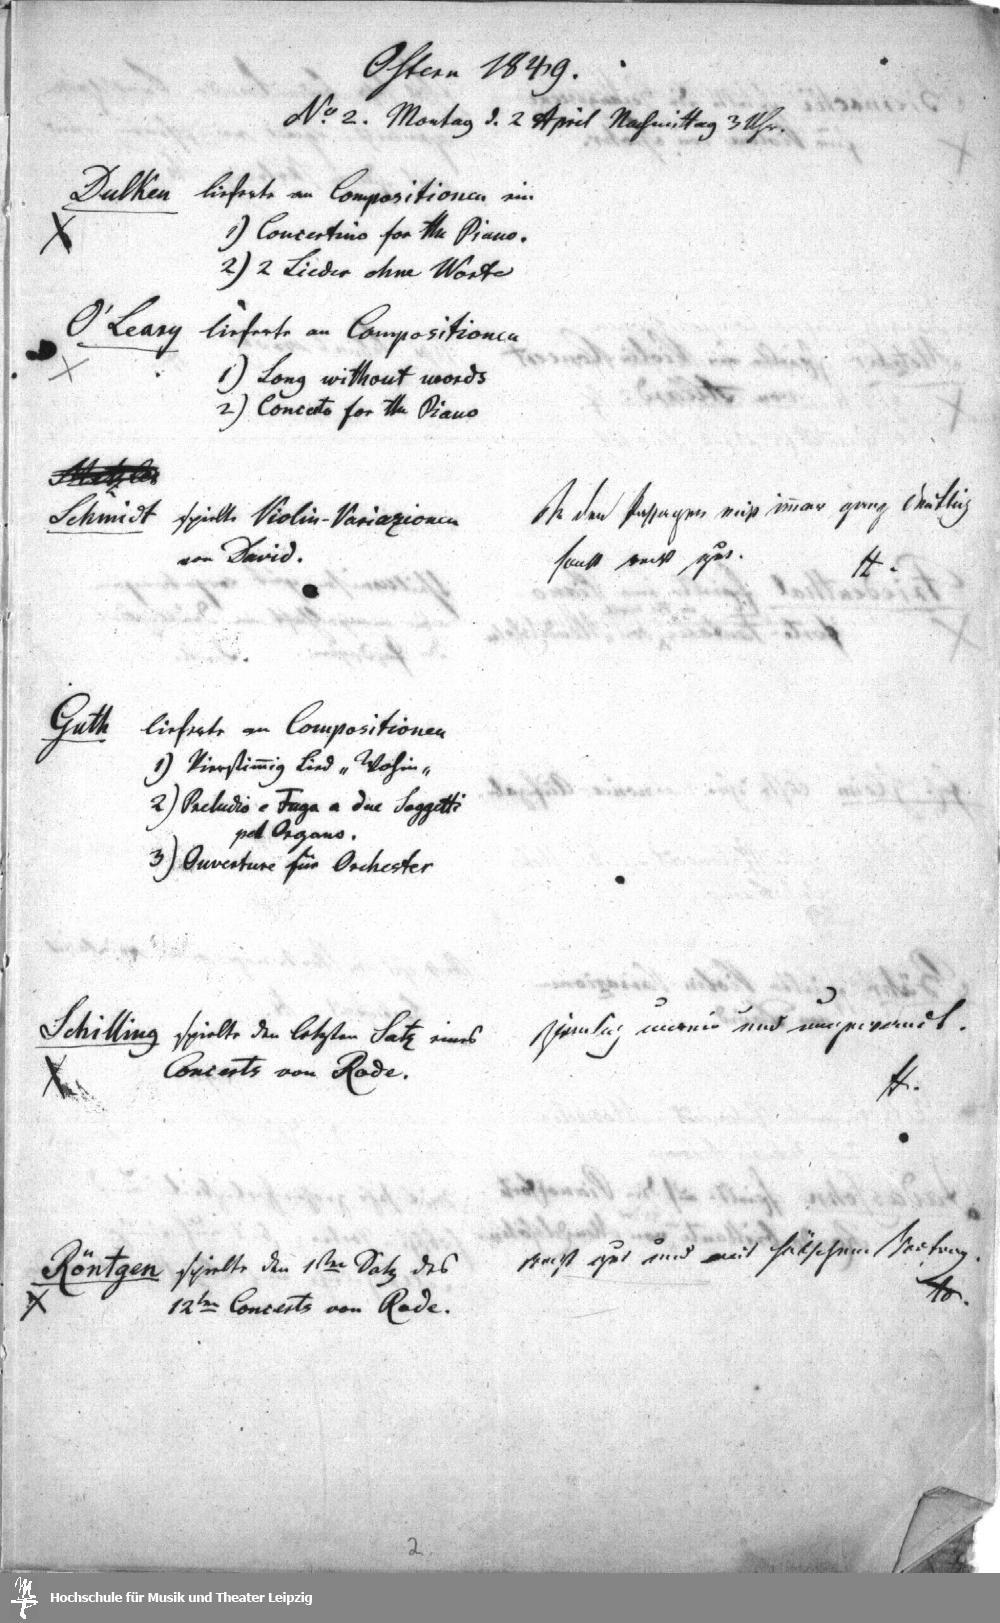 Ostern 1849.
No 2. Montag d. 2 April Nachmittag 3 Uhr.
Dulken lieferte an Compositionen ein
1) Concertino for the Piano.
2) 2 Lieder ohne Worte
O'Leary lieferte an Compositionen
1) Song without words
2) Concerto for the Piano
Schmidt spielte Violin-Variazionen
von David.
In den Passagen nicht immer ganz deutlich
sonst recht gut. H.
Guth lieferte an Compositionen
1) Vierstimmig Lied „Wohin„
2) Preludio e Fuga a due Soggetti
pel Organo.
3) Ouverture für Orchester
Schilling spielte den letzten Satz eines
Concerts von Rode.
ziemlich unrein und
H.
Röntgen spielte den 1sten Satz des
12ten Concerts von Rode.
recht gut und mit hübschem Vortrag.
H.
2
Hochschule für Musik und Theater Leipzig